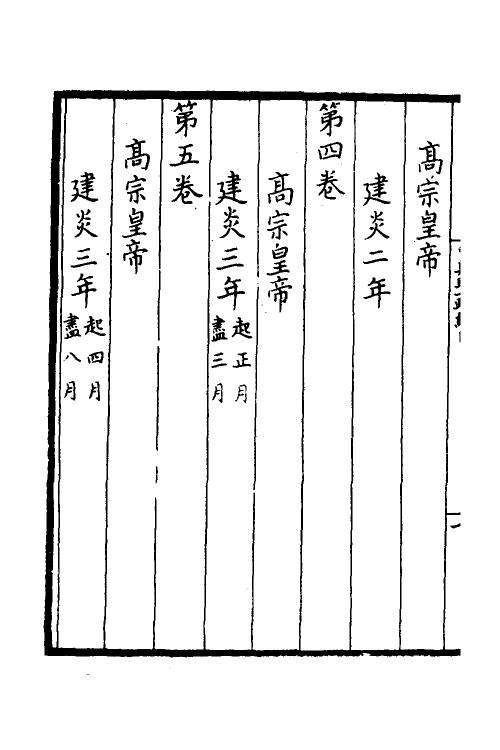 高宗皇帝
建炎二年
第四卷
高宗皇帝
建炎三年起正月盡三月
第五卷
高宗皇帝
建炎三年起四月盡八月